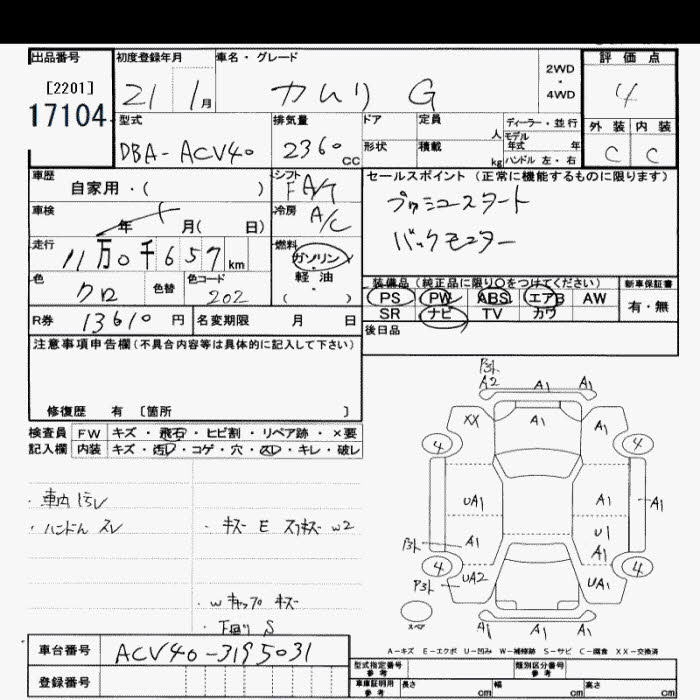 出品番号 初度登録年月 車名・グレード 2WD・4WD 評価点
[2201] 21 1月 カムリ G 4
17104
型式 排気量 ドア 定員 人 ディーラー・並行 外装 内装
DBA-ACV40 2360 CC 形状 積載 kg モデル年式 年 ハンドル 左・右 C C
車歴 自家用・( ) シフト FA/T セールスポイント (正常に機能するものに限ります)
車検 年 月( 日) 冷房 A/C プッシュスタート
バックモニター
走行 11万0千657km 燃料 ガソリン・軽油 ( )
色 クロ 色替 色コード 202
装備品 (純正品に限り○をつけてください) 新車保証書
PS PW ABS エアB AW 有・無
SR ナビ TV カワ
R券 13610円 名変期限 月 日
後日品
注意事項申告欄(不具合内容等は具体的に記入して下さい)
修復歴 有 〔箇所 〕
検査員 FW キズ・飛石・ヒビ割・リペア跡・×要
記入欄 内装 キズ・汚レ・コゲ・穴・スレ・キレ・破レ
・車内汚レ
・ハンドル スレ ・キズ E スリキズ W2
・Wキャップ キズ
・下回り S
P3ト
A2 A1 A1
XX A1 A1
4 4
UA1 A1 A1
U1
P3ト A1 A1
4 4
P3ト UA2 UA1
スペア A1 A1 A1
A-キズ E-エクボ U-凹み W-補修跡 S-サビ C-腐食 XX-交換済
車台番号 ACV40-3195031
登録番号
型式指定番号 参考 類別区分番号 参考
車庫証明用 参考 長さ cm 幅 cm 高さ cm